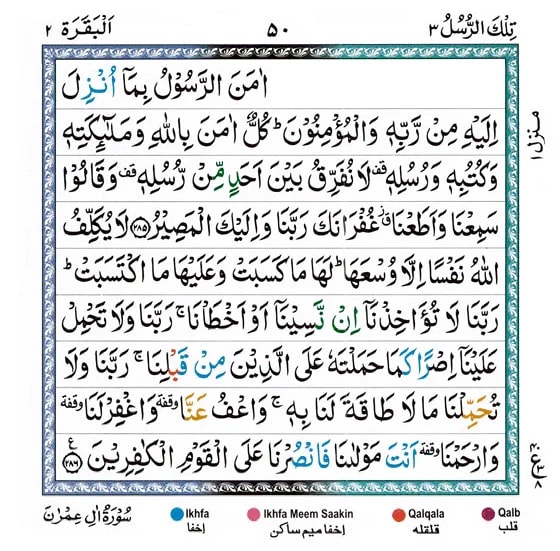 تِلْكَ الرُّسُلُ ٣ ٥٠ اَلْبَقَرَة ٢
اٰمَنَ الرَّسُوْلُ بِمَاۤ اُنْزِلَ
اِلَيْهِ مِنْ رَّبِّهٖ وَالْمُؤْمِنُوْنَ ؕ كُلٌّ اٰمَنَ بِاللّٰهِ وَمَلٰٓئِكَتِهٖ
وَكُتُبِهٖ وَرُسُلِهٖ قف لَا نُفَرِّقُ بَيْنَ اَحَدٍ مِّنْ رُّسُلِهٖ قف وَقَالُوْا
سَمِعْنَا وَاَطَعْنَا ق ز غُفْرَانَكَ رَبَّنَا وَاِلَيْكَ الْمَصِيْرُ ﴿٢٨٥﴾ لَا يُكَلِّفُ
اللّٰهُ نَفْسًا اِلَّا وُسْعَهَا ؕ لَهَا مَا كَسَبَتْ وَعَلَيْهَا مَا اكْتَسَبَتْ ؕ
رَبَّنَا لَا تُؤَاخِذْنَاۤ اِنْ نَّسِيْنَاۤ اَوْ اَخْطَاْنَا ۚ رَبَّنَا وَلَا تَحْمِلْ
عَلَيْنَاۤ اِصْرًا كَمَا حَمَلْتَهٗ عَلَى الَّذِيْنَ مِنْ قَبْلِنَا ۚ رَبَّنَا وَلَا
تُحَمِّلْنَا مَا لَا طَاقَةَ لَنَا بِهٖ ۚ وَاعْفُ عَنَّا وقفة وَاغْفِرْ لَنَا وقفة
وَارْحَمْنَا وقفة اَنْتَ مَوْلٰىنَا فَانْصُرْنَا عَلَى الْقَوْمِ الْكٰفِرِيْنَ ﴿٢٨٦﴾ ع
منزل ١
سُوْرَةُ اٰلِ عِمْرٰنَ
Ikhfa اخفا
Ikhfa Meem Saakin اخفا میم ساکن
Qalqala قلقلہ
Qalb قلب